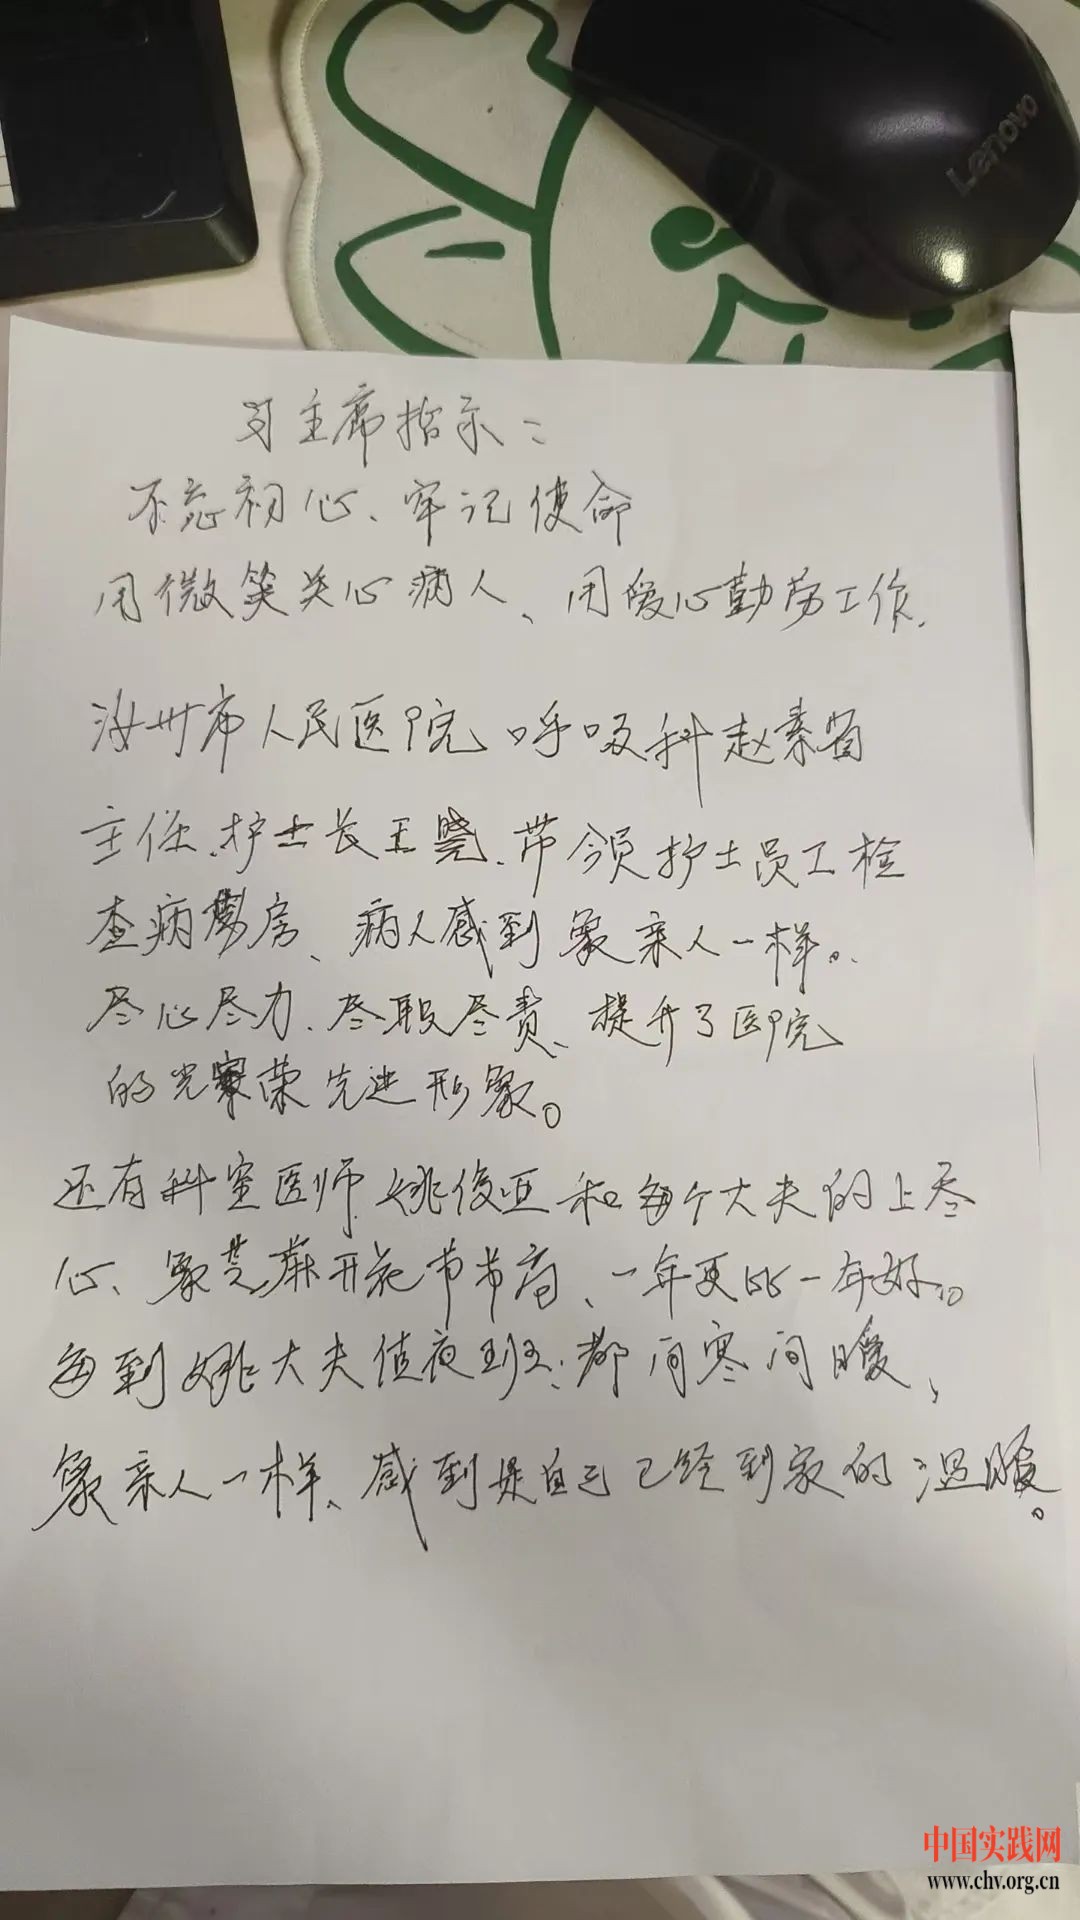 Lenovo
习主席指示：
不忘初心、牢记使命
用微笑关心病人、用爱心勤劳工作.
汝州市人民医院呼吸科赵素
主任.护士长王晓.带领护士员工检
查病房、病人感到象亲人一样。
尽心尽力.尽职尽责、提升了医院
的光荣先进形象。
还有科室医师姚俊亚和每个大夫的上尽
心、象芝麻开花节节高、一年更比一年好。
每到姚大夫值夜班.都问寒问暖、
象亲人一样、感到是自己已经到家的温暖。
中国实践网
www.chv.org.cn